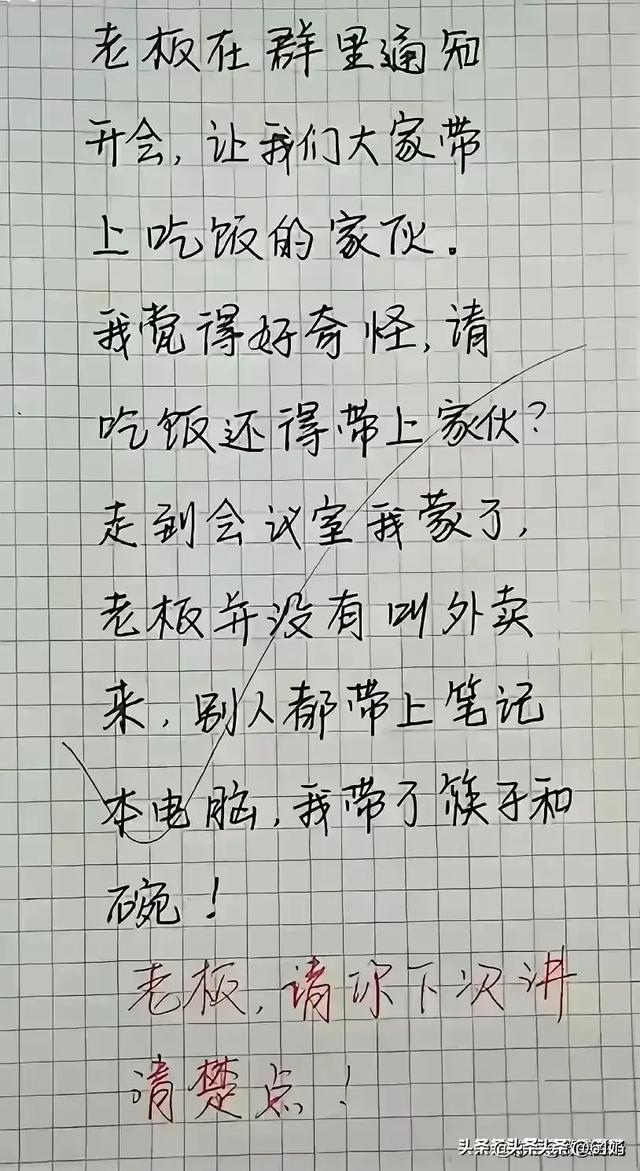 老板在群里通知
开会,让我们大家带
上吃饭的家伙。
我觉得好奇怪,请
吃饭还得带上家伙?
走到会议室我蒙了,
老板并没有叫外卖
来,别人都带上笔记
本电脑,我带了筷子和
碗!
老板,请你下次讲
清楚点!